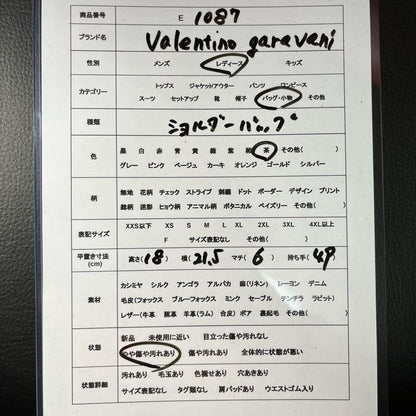 商品番号 E 1087
ブランド名 Valentino garavani
性別 メンズ レディース キッズ
カテゴリー トップス ジャケットアウター パンツ ワンピース
スーツ セットアップ 靴 帽子 バッグ・小物 その他
種類 ショルダーバッグ
色 黒 白 赤 青 黄 緑 紫 紺 茶 その他( )
グレー ピンク ベージュ カーキ オレンジ ゴールド シルバー
柄 無地 花柄 チェック ストライプ 刺繍 ドット ボーダー デザイン プリント
総柄 迷彩 ヒョウ柄 アニマル柄 ボタニカル ペイズリー その他( )
表記サイズ XXS以下 XS S M L XL 2XL 3XL 4XL以上
F サイズ表記なし その他( )
平置き寸法(cm) 高さ(18) 横(21.5) マチ(6) 持ち手(49)
素材 カシミヤ シルク アンゴラ アルパカ 麻(リネン) レーヨン デニム
毛皮(フォックス ブルーフォックス ミンク セーブル チンチラ ラビット)
レザー(牛革 豚革 羊革(ラム) 合皮) ボア 裏起毛 その他( )
状態 新品 未使用に近い 目立った傷や汚れなし
やや傷や汚れあり 傷や汚れあり 全体的に状態が悪い
状態詳細 汚れあり 毛玉あり 色褪せあり 穴あきあり
サイズ表記なし タグ類なし 肩パッドあり ウエストゴム入り